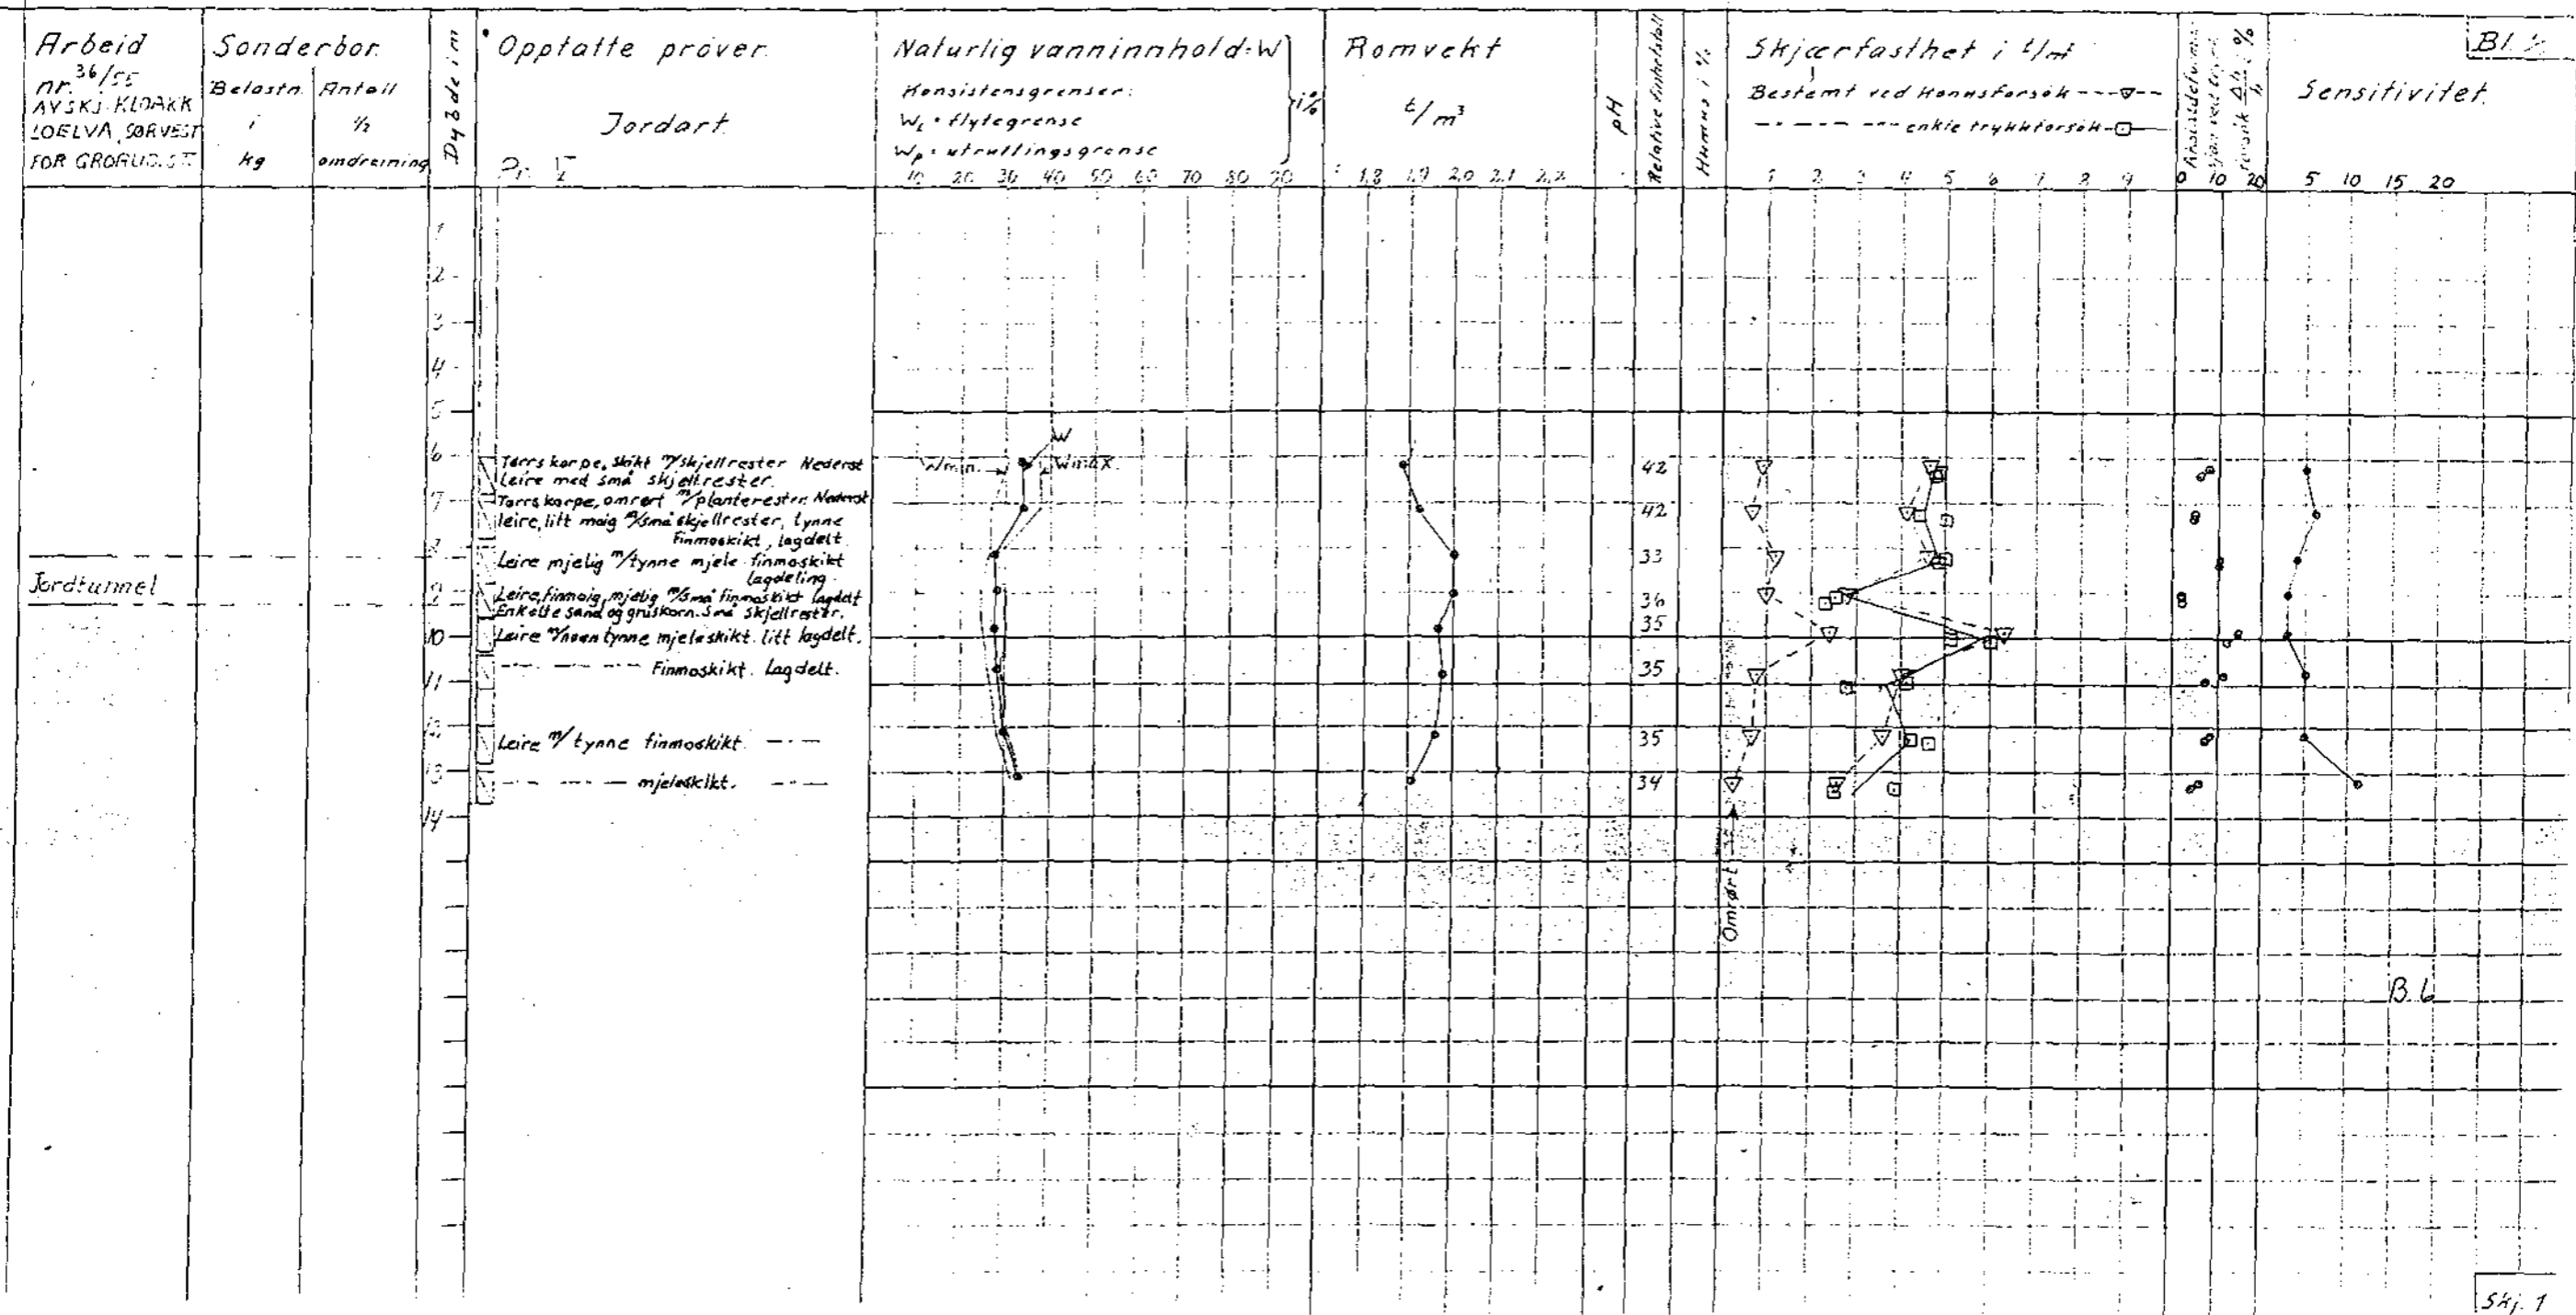 Arbeid
nr. 36/55
AVSKJ. KLOAKK
LOELVA, SØRVEST
FOR GRORUD. ST
Sonderbor.
Belastn. i kg
Antall 1/2 omdreining
Dybde i m
Opptatte prøver.
Jordart.
Naturlig vanninnhold: W
Konsistensgrenser:
WL = flytegrense
Wp = utrullingsgrense
i %
10 20 30 40 50 60 70 80 90
Romvekt
t/m³
1,8 1,9 2,0 2,1 2,2
pH
Relative finhetstall
Humus i %
Skjærfasthet i t/m²
Bestemt ved Konusforsøk
enkle trykkforsøk
1 2 3 4 5 6 7 8 9
0 10 20
Sensitivitet.
5 10 15 20
1
2
3
4
5
6
7
8
9
10
11
12
13
14
Jordtunnel
Tørrskorpe, skikt m/skjellrester Nederst
Leire med små skjellrester.
Tørrskorpe, omrørt m/planterester. Nederst
leire, litt moig m/små skjellrester, tynne
finmoskikt, lagdelt.
Leire mjelig m/tynne mjele-finmoskikt
lagdeling.
Leire, finmoig, mjelig m/små finmoskikt lagdelt
Enkelte sand og gruskorn. Små skjellrester.
Leire m/noen tynne mjeleskikt. litt lagdelt.
Finmoskikt. Lagdelt.
Leire m/ tynne finmoskikt.
mjeleskikt.
W
Wmin.
Wmax.
42
42
33
36
35
35
35
34
Omrørt
B.6
Skj. 1